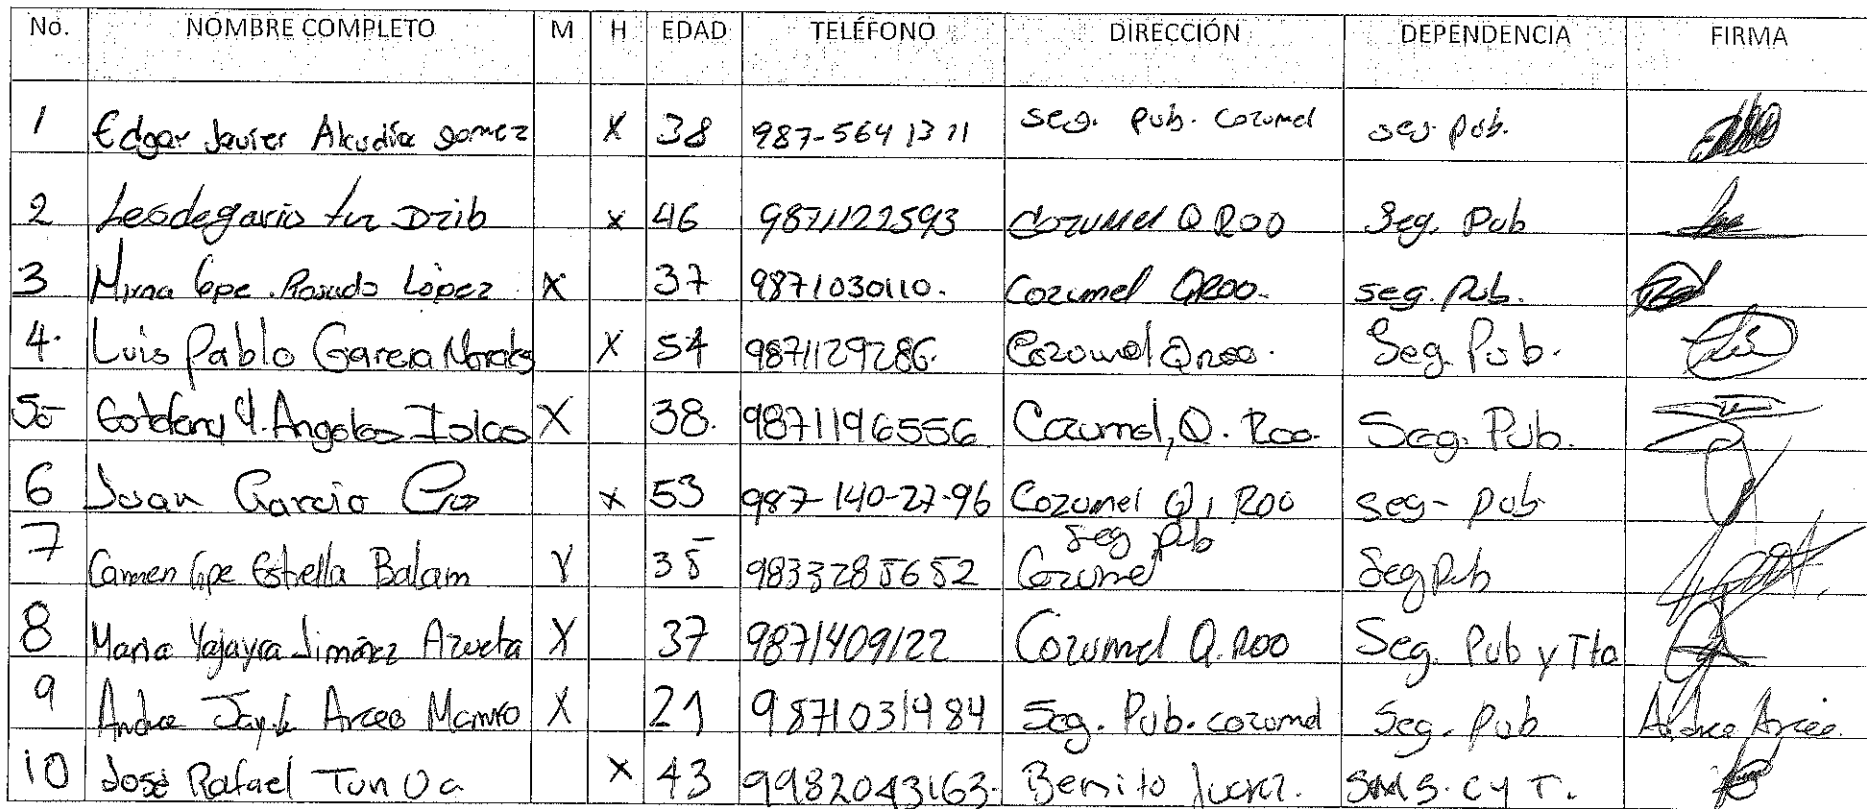 No. NOMBRE COMPLETO M H EDAD TELÉFONO DIRECCIÓN DEPENDENCIA FIRMA
1 Edgar Javier Alcudia gomez X 38 987-564 13 11 seg. pub. cozumel seg. pub.
2 Leodegario Dzib x 46 9871122593 Cozumel Q ROO Seg. Pub
3 Mirna Gpe. Rosado López X 37 9871030110. Cozumel QROO. seg. Pub.
4. Luis Pablo Garcia Morales X 54 9871129286. Cozumel Qroo. Seg. Pub.
5 Angeles X 38. 9871196556 Cozumel, Q. Roo. Seg. Pub.
6 Juan Garcia Cruz x 53 987-140-27-96 Cozumel Q, ROO seg- pub
7 Carmen Gpe Estrella Balam X 35 9833285652 Seg pub Cozumel Seg Pub
8 Maria Yajayra Jiménez Azueta X 37 9871409122 Cozumel Q. ROO Seg. Pub y Tto
9 Arceo X 21 9871031984 Seg. Pub. cozumel Seg. pub Arceo
10 José Rafael Tun Uc X 43 9982043163. Benito Juarez. S.M.S. C y T.